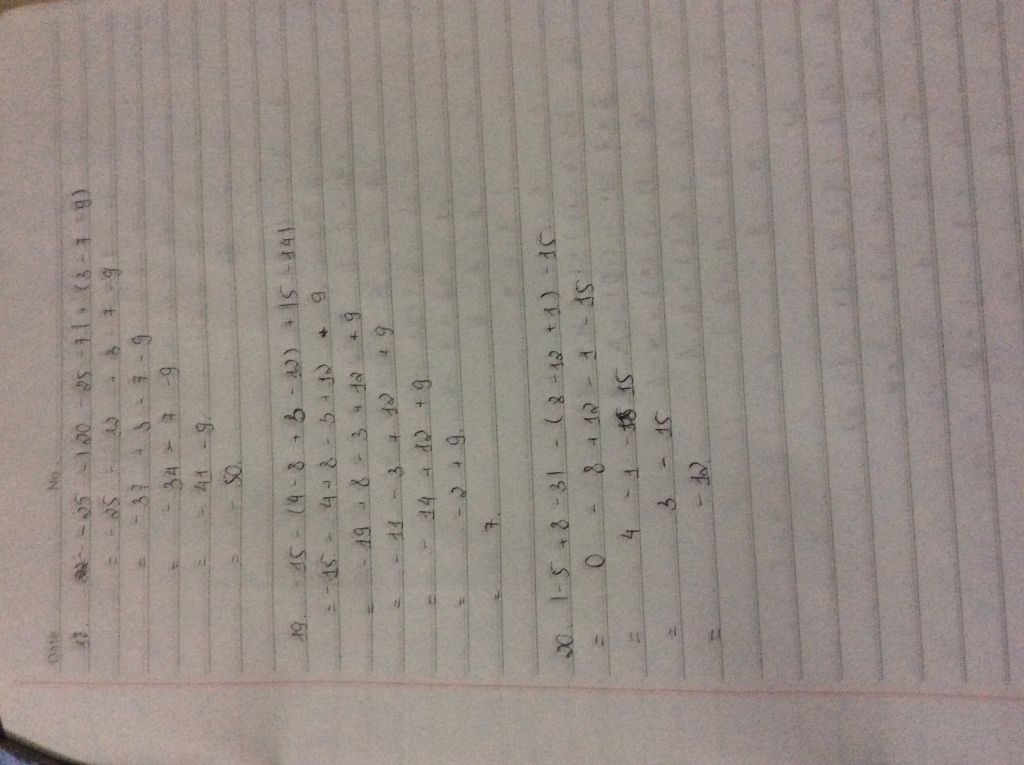 Date No
18. -25 - |20 - 25 - 7| + (3 - 7 - 9)
= -25 - 12 + 3 - 7 - 9
= -37 + 3 - 7 - 9
= -34 - 7 - 9
= -41 - 9
= -50.
19. -15 - (4 - 8 + 3 - 12) + |5 - 14|
= -15 - 4 + 8 - 3 + 12 + 9
= -19 + 8 - 3 + 12 + 9
= -11 - 3 + 12 + 9
= -14 + 12 + 9
= -2 + 9
= 7.
20. |-5 + 8 - 3| - (8 - 12 + 1) - 15
= 0 - 8 + 12 - 1 - 15
= 4 - 1 - 15
= 3 - 15
= -12